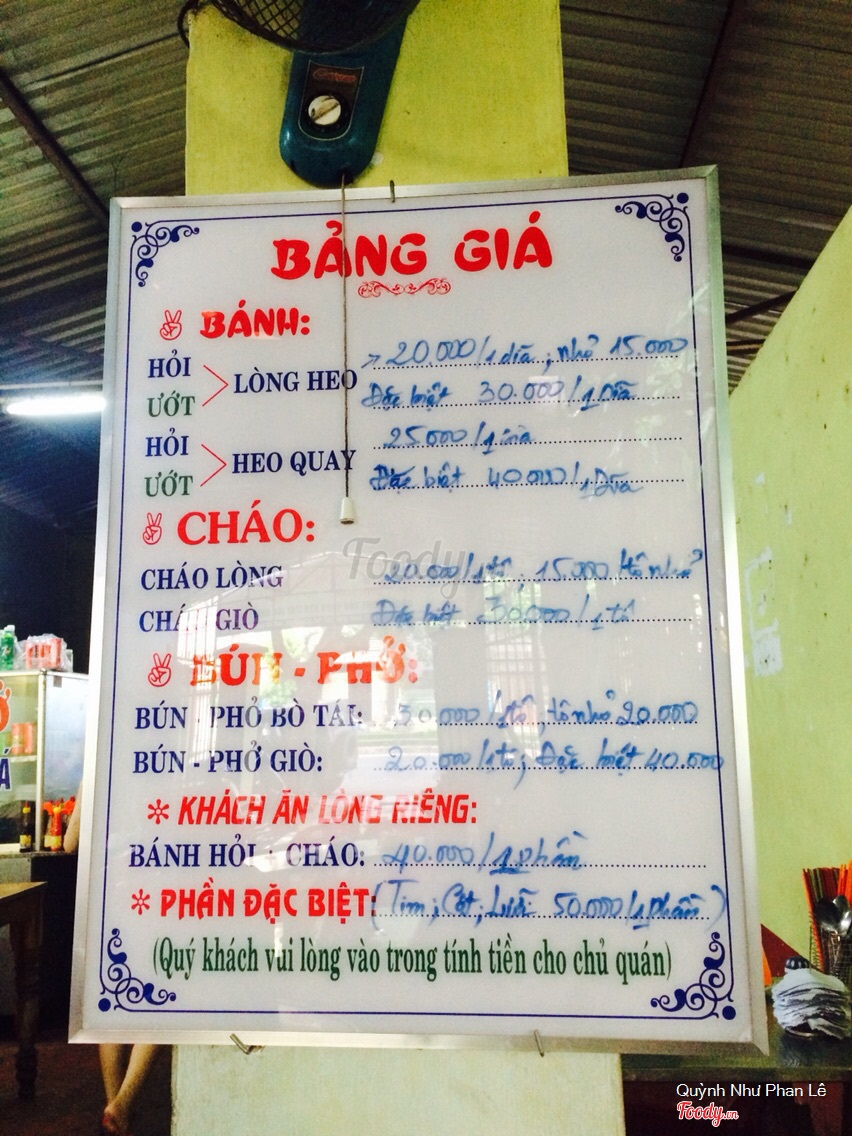 BẢNG GIÁ
BÁNH:
HỎI ƯỚT > LÒNG HEO > 20.000/1 dĩa, nhỏ 15.000
Đặc biệt 30.000/1 Dĩa
HỎI ƯỚT > HEO QUAY 25000/1 dĩa
Đặc biệt 40000/1 Dĩa
CHÁO:
CHÁO LÒNG 20.000/1 tô, 15.000/tô nhỏ
CHÁO GIÒ Đặc biệt 30000/1 tô
BÚN - PHỞ:
BÚN - PHỎ BÒ TÁI: 30000/1 tô, tô nhỏ 20.000
BÚN - PHỞ GIÒ: 20.000/1 tô, Đặc biệt 40.000
* KHÁCH ĂN LÒNG RIÊNG:
BÁNH HỎI + CHÁO: 40.000/1 phần
* PHẦN ĐẶC BIỆT: (Tim, Cật, Lưỡi 50.000/1 phần)
(Quý khách vui lòng vào trong tính tiền cho chủ quán)
Foody
Quỳnh Như Phan Lê
Foody.vn